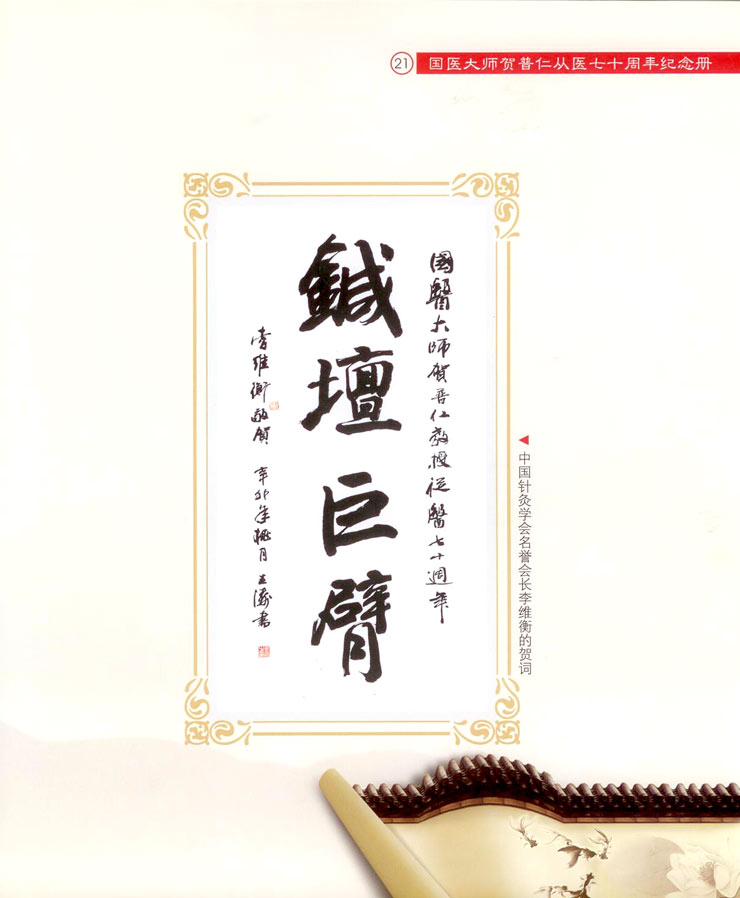 21
国医大师贺普仁从医七十周年纪念册
國醫大师贺普仁教授從醫七十週年
鍼壇巨臂
李維衡敬贺 辛卯年桃月 書
中国针灸学会名誉会长李维衡的贺词